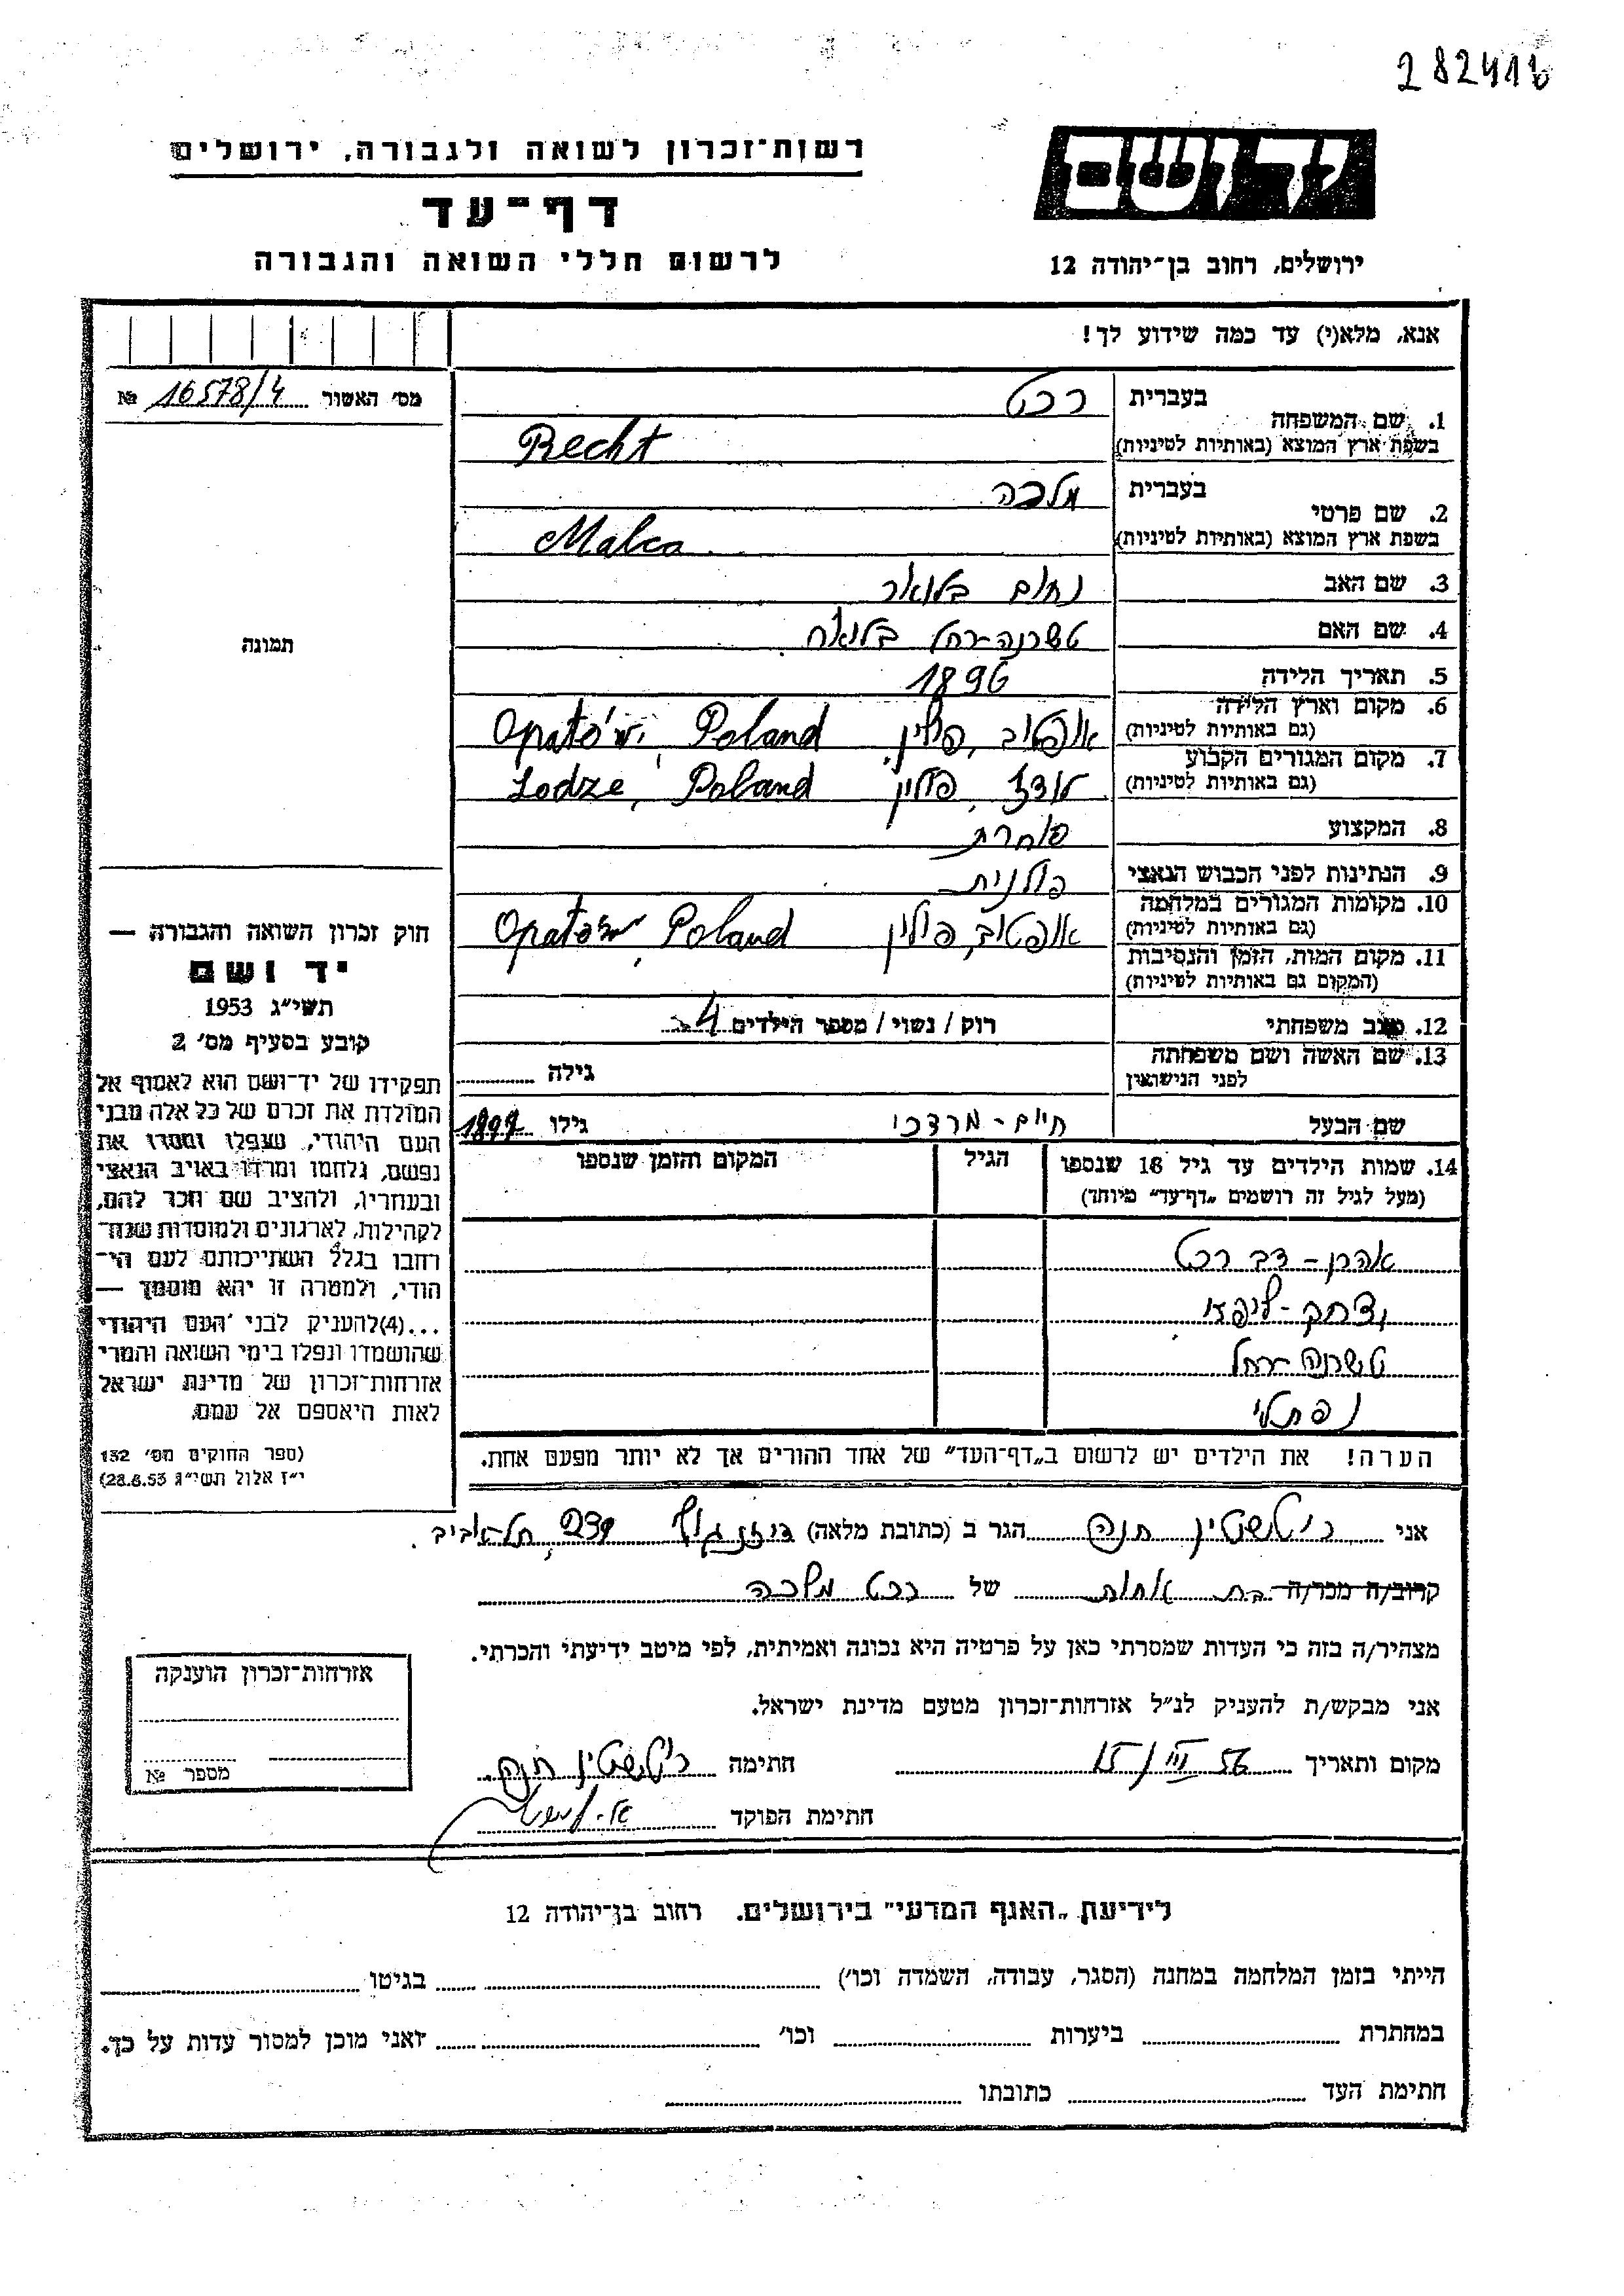 282416
יד ושם
רשות־זכרון לשואה ולגבורה, ירושלים
דף־עד
לרשום חללי השואה והגבורה
ירושלים, רחוב בן־יהודה 12
אנא, מלא(י) עד כמה שידוע לך!
מס׳ האשור 16578/4 №
1. שם המשפחה בעברית רכט
בשפת ארץ המוצא (באותיות לטיניות) Recht
2. שם פרטי בעברית מלכה
בשפת ארץ המוצא (באותיות לטיניות) Malca
3. שם האב נחום
4. שם האם טשרנה־רחל
5. תאריך הלידה 1896
6. מקום וארץ הלידה (גם באותיות לטיניות) אופטוב, פולין, Opatów, Poland
7. מקום המגורים הקבוע (גם באותיות לטיניות) לודז, פולין Lodze, Poland
8. המקצוע סוחרת
9. הנתינות לפני הכבוש הנאצי פולנית
10. מקומות המגורים במלחמה (גם באותיות לטיניות) אופטוב, פולין Opatów, Poland
11. מקום המות, הזמן והנסיבות (המקום גם באותיות לטיניות)
12. מצב משפחתי רוק / נשוי / מספר הילדים 4
13. שם האשה ושם משפחתה לפני הנישואין גילה
שם הבעל חיים - מרדכי גילו
14. שמות הילדים עד גיל 16 שנספו הגיל המקום והזמן שנספו
(מעל לגיל זה רושמים „דף־עד״ מיוחד)
אהרן - דב רכט
יצחק - ליפא
טשרנה רחל
נפתלי
הערה! את הילדים יש לרשום ב„דף־העד״ של אחד ההורים אך לא יותר מפעם אחת.
תמונה
חוק זכרון השואה והגבורה —
יד ושם
תשי״ג 1953
קובע בסעיף מס׳ 2
תפקידו של יד־ושם הוא לאסוף אל
המולדת את זכרם של כל אלה מבני
העם היהודי, שנפלו ומסרו את
נפשם, נלחמו ומרדו באויב הנאצי
ובעוזריו, ולהציב שם וזכר להם,
לקהילות, לארגונים ולמוסדות שנח־
רבו בגלל השתייכותם לעם הי־
הודי, ולמטרה זו יהא מוסמך —
...(4) להעניק לבני העם היהודי
שהושמדו ונפלו בימי השואה והמרי
אזרחות־זכרון של מדינת ישראל
לאות היאספם אל עמם.
(ספר החוקים מס׳ 132
י״ז אלול תשי״ג 28.8.53)
אני חנה הגר ב (כתובת מלאה) דיזנגוף 239 תל אביב.
קרוב/ה מכר/ה בת אחות של רכט מלכה
מצהיר/ה בזה כי העדות שמסרתי כאן על פרטיה היא נכונה ואמיתית, לפי מיטב ידיעתי והכרתי.
אני מבקש/ת להעניק לנ״ל אזרחות־זכרון מטעם מדינת ישראל.
מקום ותאריך 15/III 56 חתימה חנה
חתימת הפוקד
אזרחות־זכרון הוענקה
מספר №
לידיעת „האגף המדעי״ בירושלים. רחוב בן־יהודה 12
הייתי בזמן המלחמה במחנה (הסגר, עבודה, השמדה וכו׳) בגיטו
במחתרת ביערות וכו׳ ואני מוכן למסור עדות על כך.
חתימת העד כתובתו